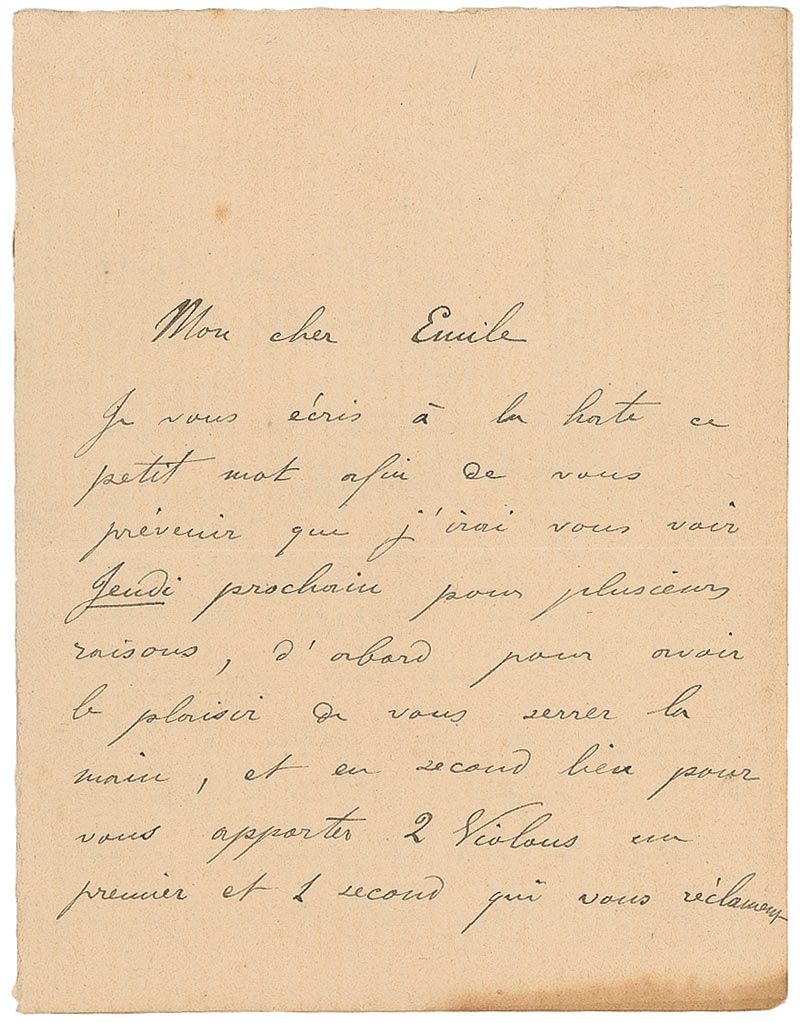 Mon cher Emile
Je vous écris à la hate ce
petit mot afin de vous
prévenir que j'irai vous voir
Jeudi prochain pour plusieurs
raisons, d'abord pour avoir
le plaisir de vous serrer la
main, et en second lieu pour
vous apporter 2 Violons un
premier et 1 second qui vous réclament